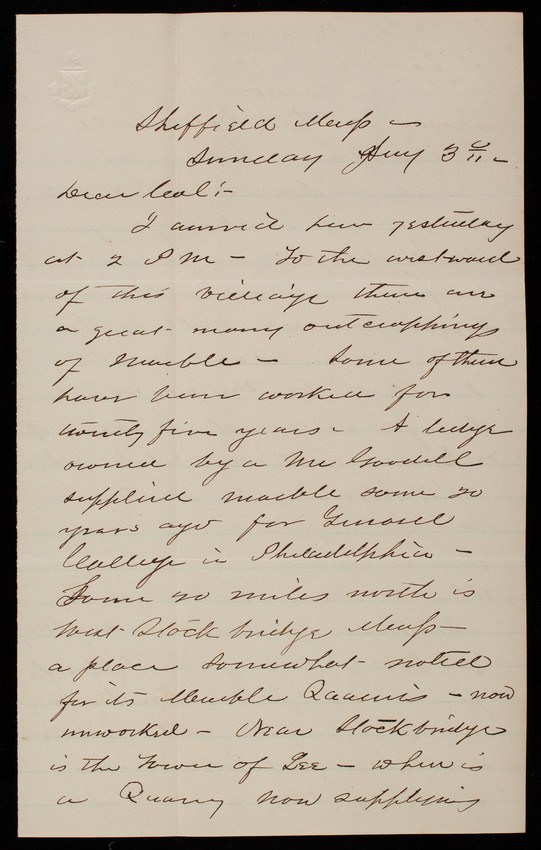 Sheffield Mass -
Sunday Aug 3d -
Dear Col:-
I arrived here yesterday
at 2 P M - To the westward
of this village there are
a great many outcroppings
of Marble - Some of them
have been worked for
twenty five years - A ledge
owned by a Mr Goodell
supplied marble some 20
years ago for Girard
College in Philadelphia -
Some 20 miles north is
West Stockbridge Mass -
a place somewhat noted
for its Marble Quarries - now
unworked - Near Stockbridge
is the Town of Lee - where is
a Quarry now supplying